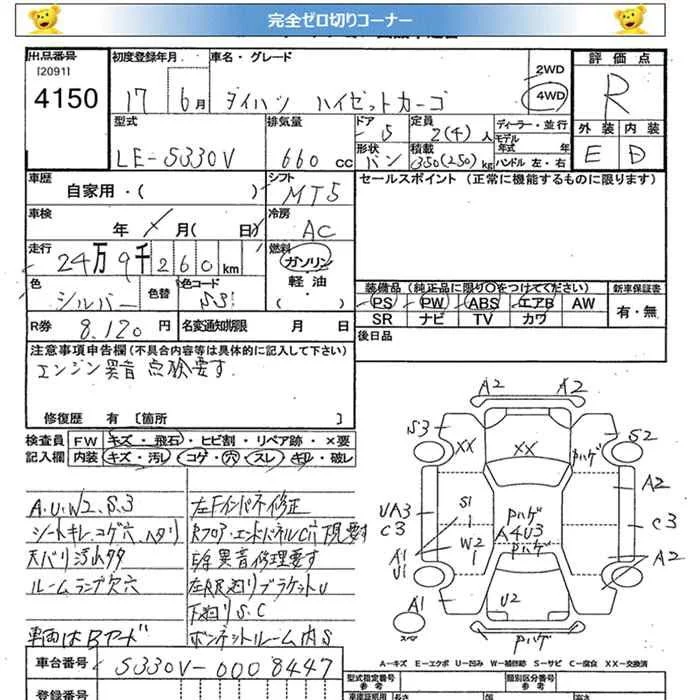 完全ゼロ切りコーナー
出品番号
[2091]
4150
初度登録年月 車名・グレード
17 6月 ダイハツ ハイゼットカーゴ
2WD
4WD
評価点
R
外装 内装
E D
型式 排気量 ドア 定員 ディーラー・並行
LE-S330V 660 cc 5 2(4)人
モデル年式 年
形状 積載
バン 350(250)kg ハンドル 左・右
車歴 シフト
自家用・( ) MT5
セールスポイント (正常に機能するものに限ります)
車検 冷房
年 月( 日) AC
走行 燃料
24万9千260km ガソリン
軽油
・( )
色 色替 色コード
シルバー S31
装備品 (純正品に限り○をつけてください) 新車保証書
PS PW ABS エアB AW 有・無
SR ナビ TV カワ
R券 8,120円 名変通知期限 月 日
後日品
注意事項申告欄(不具合内容等は具体的に記入して下さい)
エンジン異音 点検要す
修復歴 有 [箇所 ]
検査員 FW キズ・飛石・ヒビ割・リペア跡・×要
記入欄 内装 キズ・汚レ・コゲ・穴・スレ・キレ・破レ
A.U.W2.S.3 左Fインパネ修正
シートキレ.コゲ穴.ヘタリ Rフロア・エンドパネルC穴 現要す
天バリ汚れタタ 異音修理要す
ルームランプ欠穴 ブラケットU
下廻りS.C
車両はBヤード ボンネットルーム内S
A2 A2
S3 XX XX パハゲ S2
A2
UA3
C3
S1
パハゲ
A4U3
パハゲ
W2
C3
A1
U1
A2
A1
スペア
U2
パハゲ
A-キズ E-エクボ U-凹み W-補修跡 S-サビ C-腐食 XX-交換済
車台番号 S330V-0008447
登録番号
型式指定番号 類別区分番号
参考 参考
長さ 幅 高さ